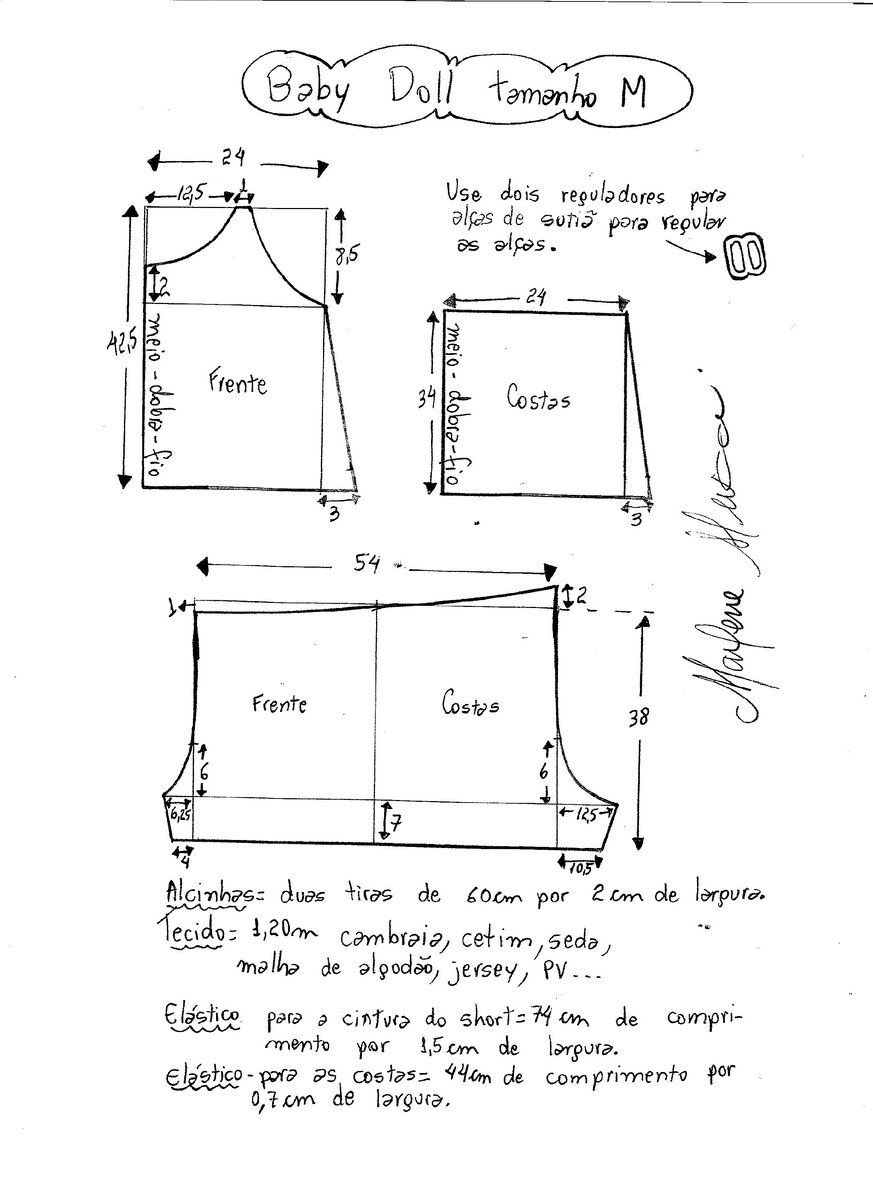 Baby Doll tamanho M
24
12,5
1
Use dois reguladores para
alças de sutiã para regular
as alças.
8,5
2
42,5
meio-dobra-fio
Frente
3
24
34
meio-dobra-fio
Costas
3
54
1
2
Frente
Costas
38
6
6
6,25
7
12,5
4
10,5
Alcinhas= duas tiras de 60cm por 2cm de largura.
Tecido= 1,20m cambraia, cetim, seda,
malha de algodão, jersey, PV...
Elástico para a cintura do short=74cm de compri-
mento por 1,5cm de largura.
Elástico-para as costas= 44cm de comprimento por
0,7cm de largura.